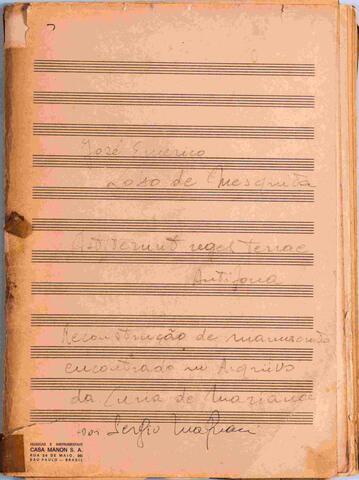 José Emerico
Lobo de Mesquita
Astiterunt reges terrae
Antifona
Reconstrução de manuscrito
encontrado no Arquivo
da Curia de Mariana
por Sergio Magnani
MUSICAS E INSTRUMENTOS
CASA MANON S. A.
RUA 24 DE MAIO, 242
SÃO PAULO - BRASIL